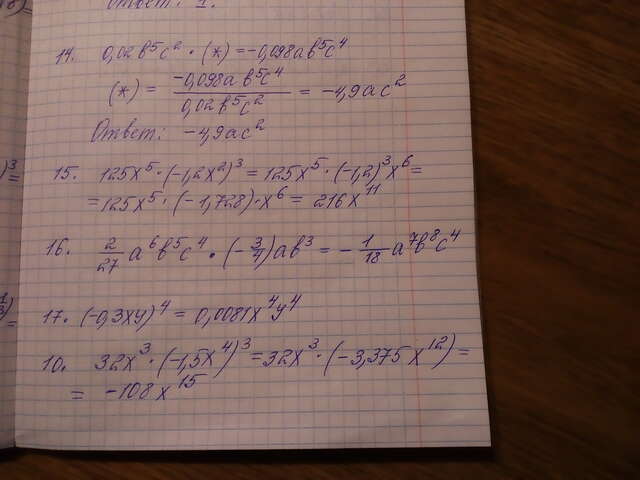 Ответ: 1.
14. 0,02b⁵c² · (*) = -0,098ab⁵c⁴
(*) = -0,098ab⁵c⁴ / 0,02b⁵c² = -4,9ac²
Ответ: -4,9ac²
15. 125x⁵ · (-1,2x²)³ = 125x⁵ · (-1,2)³x⁶ =
= 125x⁵ · (-1,728) · x⁶ = 216x¹¹
16. 2/27 a⁶b⁵c⁴ · (-3/4)ab³ = -1/18 a⁷b⁸c⁴
17. (-0,3xy)⁴ = 0,0081x⁴y⁴
10. 32x³ · (-1,5x⁴)³ = 32x³ · (-3,375x¹²) =
= -108x¹⁵